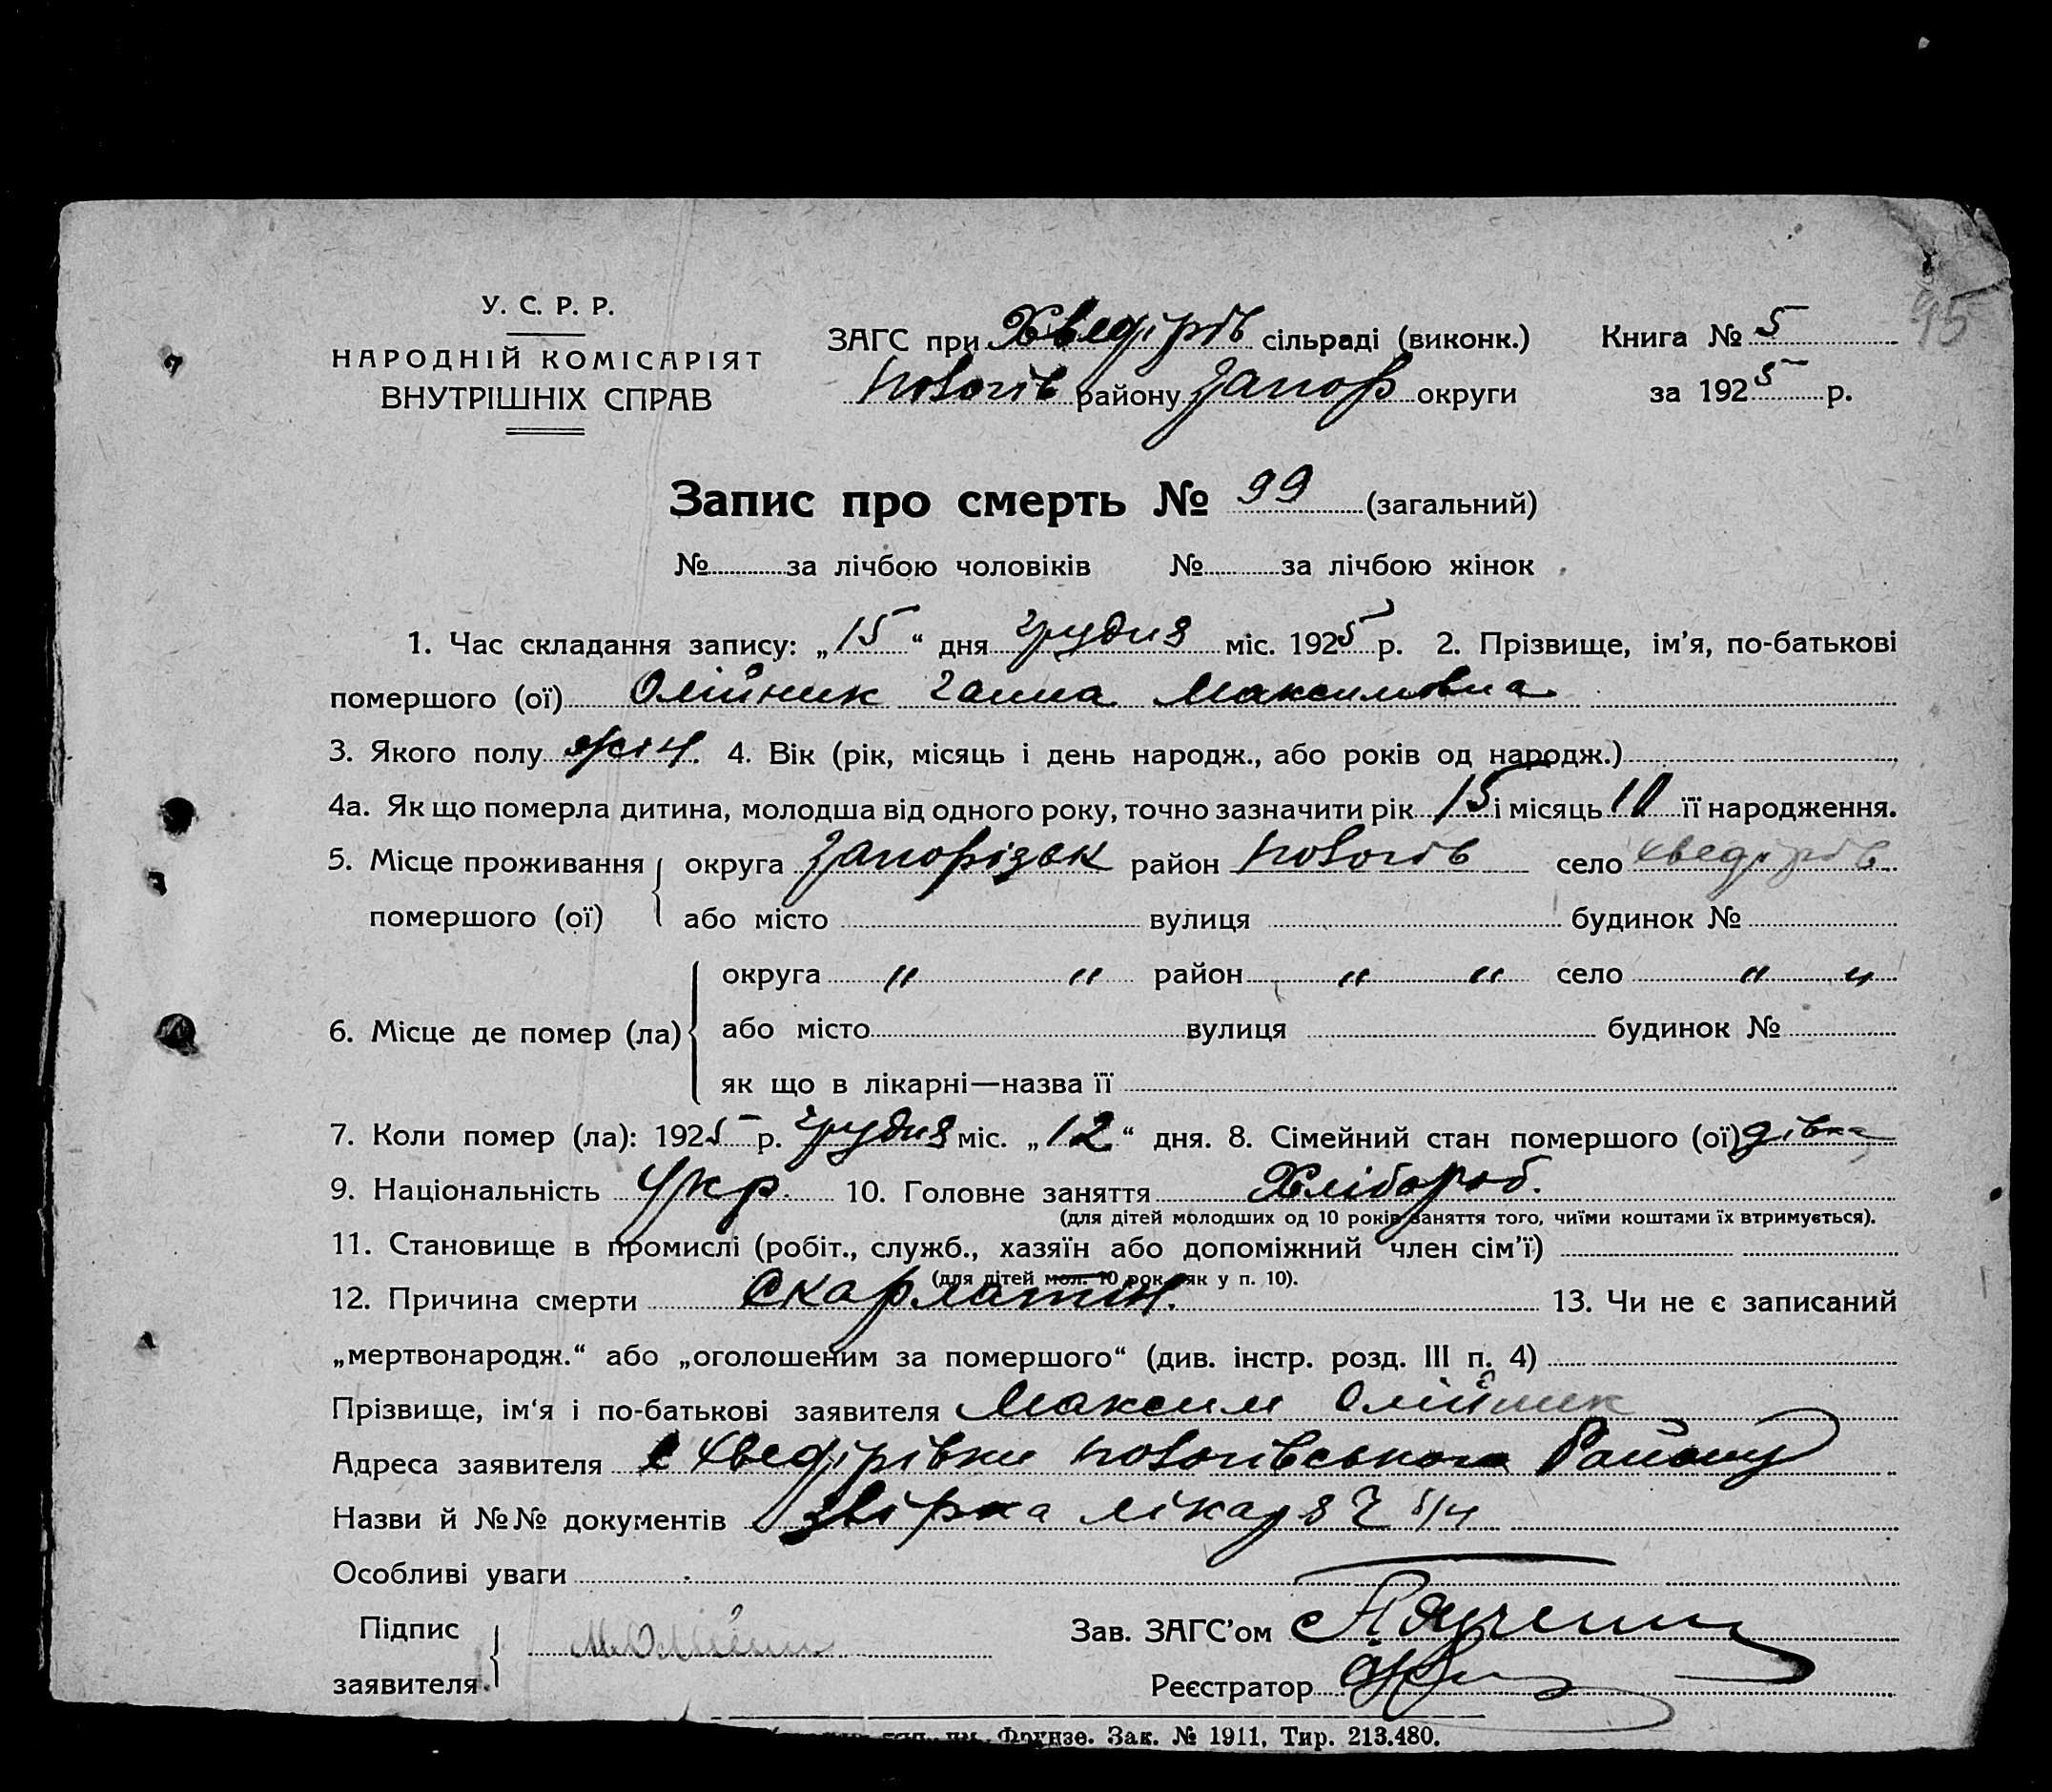 95
У. С. Р. Р.
НАРОДНІЙ КОМІСАРІЯТ
ВНУТРІШНІХ СПРАВ
ЗАГС при Хведірів сільраді (виконк.) Книга № 5
Пологів району Запор округи за 1925 р.
Запис про смерть № 99 (загальний)
№ за лічбою чоловіків № за лічбою жінок
1. Час складання запису: „15“ дня грудня міс. 1925 р. 2. Прізвище, ім’я, по-батькові
помершого (ої) Олійник Ганна Максимовна
3. Якого полу жін. 4. Вік (рік, місяць і день народж., або років од народж.)
4а. Як що померла дитина, молодша від одного року, точно зазначити рік 15 і місяць 10 її народження.
5. Місце проживання округа Запорізьк район Пологів село Хведірів
помершого (ої) або місто вулиця будинок №
округа " " район " " село " "
6. Місце де помер (ла) або місто вулиця будинок №
як що в лікарні—назва її
7. Коли помер (ла): 1925 р. грудня міс. „12“ дня. 8. Сімейний стан помершого (ої) дівка
9. Національність Укр. 10. Головне заняття Хлібороб.
(для дітей молодших од 10 років заняття того, чиїми коштами їх втримується).
11. Становище в промислі (робіт., служб., хазяїн або допоміжний член сім’ї)
(для дітей мол. 10 рок. як у п. 10).
12. Причина смерти Скарлатін. 13. Чи не є записаний
„мертвонародж.“ або „оголошеним за помершого“ (див. інстр. розд. III п. 4)
Прізвище, ім‘я і по-батькові заявителя Максим Олійник
Адреса заявителя с Хведірівки Пологівського Району
Назви й №№ документів звірка лікаря
Особливі уваги
Підпис Зав. ЗАГС’ом
заявителя. Реєстратор
Фрунзе. Зак. № 1911, Тир. 213.480.